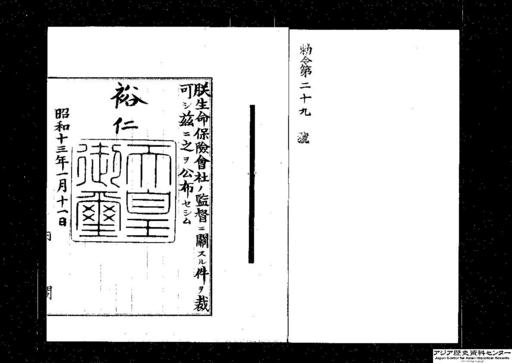 勅令第二十九號
朕生命保險會社ノ監督ニ關スル件ヲ裁
可シ茲ニ之ヲ公布セシム
裕仁
天皇
御璽
昭和十三年一月十一日
内閣
アジア歴史資料センター
Japan Center for Asian Historical Records